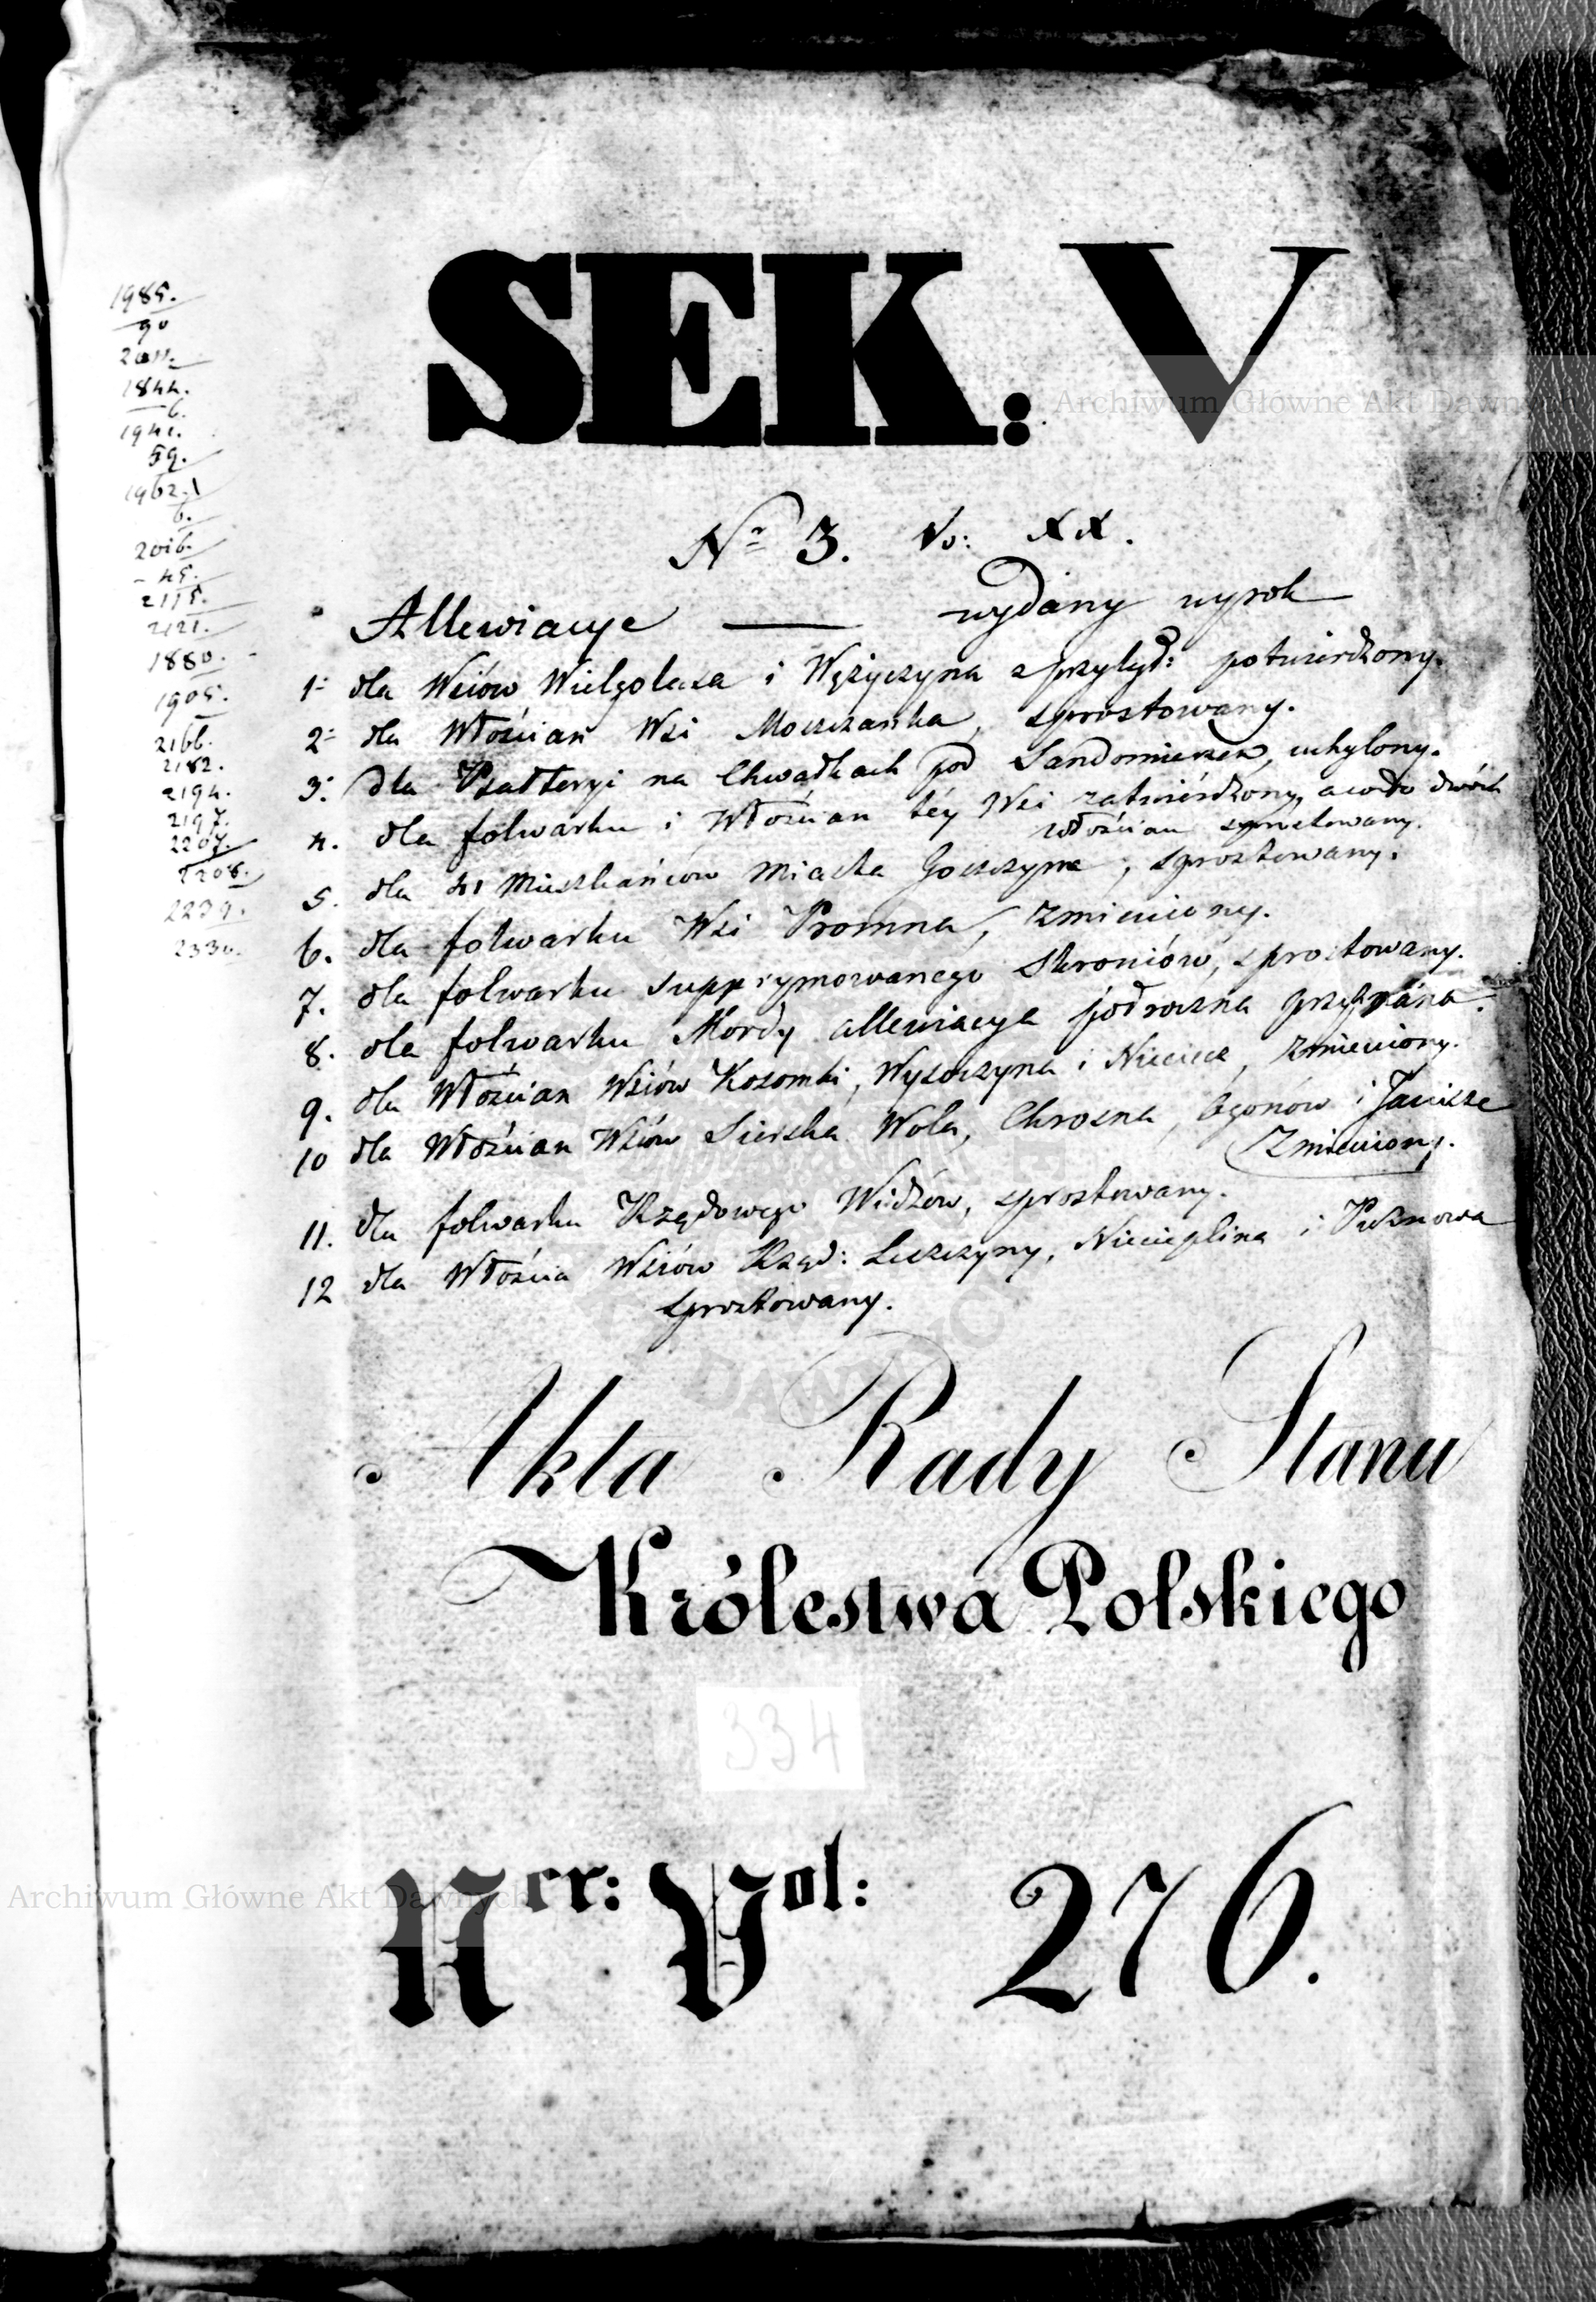 SEK: V
Nr 3. Vo: XX.
Allewiacye — wydany wyrok
1. dla Wsiów Wielgolasa i Wężyczyna z przyłgł: potwierdzony.
2. dla Włościan Wsi Moszczanka, sprostowany.
3. dla Psałteryi na Chwałkach pod Sandomierzem, uchylony.
4. dla folwarku i Włościan téy Wsi zatwiérdzony, a co do dwóch
włościan sprostowany.
5. dla 41 Mieszkańcow Miasta Goszczyna, sprostowany.
6. dla folwarku Wsi Promna, zmieniony.
7. dla folwarku supprymowanego Skroniów, sprostowany.
8. dla folwarku Mordy allewiacya podroczna przyznana.
9. dla Włościan Wsiów Kosomki, Wysoczyna i Nieciecz, zmieniony.
10 dla Włościan Wsiów Sierska Wola, Chrosna, i Janisze
zmieniony.
11. dla folwarku Rządowego Widzów, sprostowany.
12 dla Włościa Wsiów Rząd: Leszczyny, Niecieplina i
sprostowany.
Akta Rady Stanu
Królestwa Polskiego
334
Ner: Vol: 276.
1985.
90
2011.
1844.
6.
1941.
59.
1962.
6.
2016.
- 45.
2115.
2121.
1880.
1905.
2166.
2182.
2194.
2197.
2207.
2208.
2239.
2330.
Archiwum Główne Akt Dawnych
Archiwum Główne Akt Dawnych